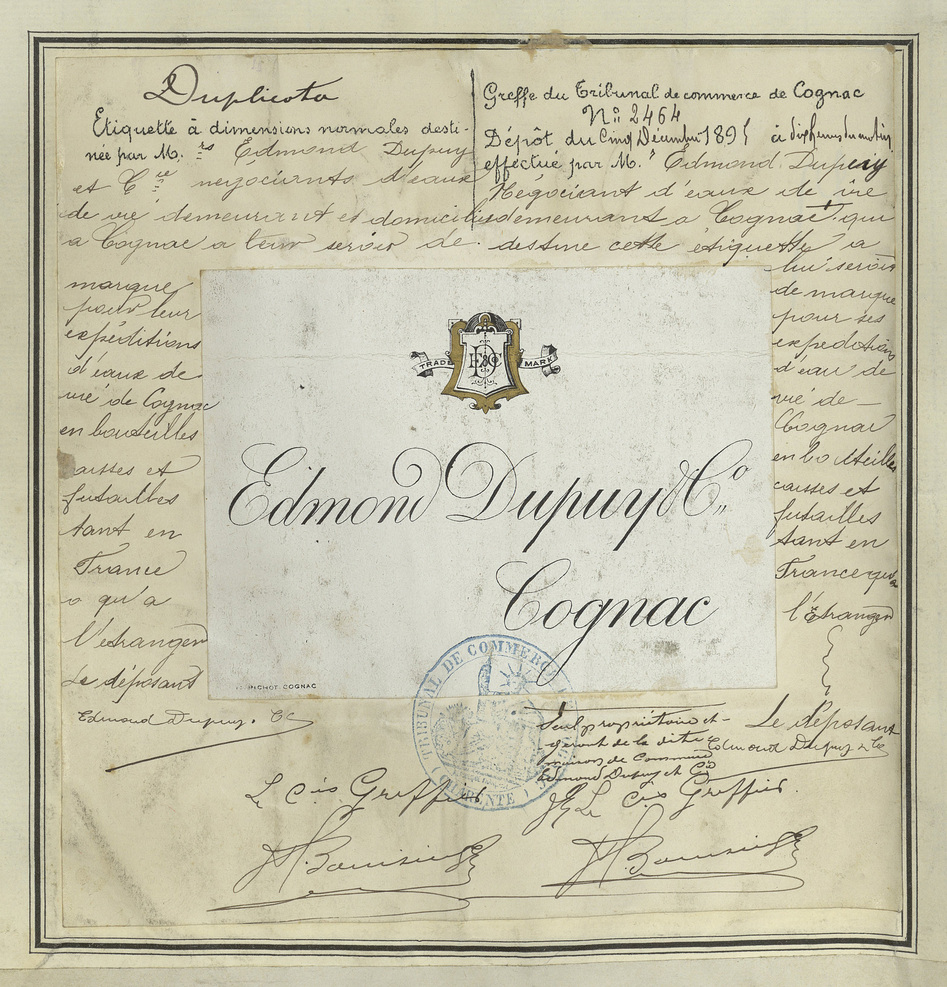 Duplicata
Etiquette à dimensions normales desti-
née par M.rs Edmond Dupuy
et Cie négociants d'eaux
de vie demeurant et domiciliés
a Cognac a leur servir de
marque
pour leur
expéditions
d'eaux de
vie de Cognac
en bouteilles
caisses et
futailles
tant en
France
qu'a
l'etranger
Le déposant
Edmond Dupuy. Co
Greffe du Tribunal de commerce de Cognac
No 2464
Dépôt du Cinq Décembre 1895 à dix heures du matin
effectué par M. Edmond Dupuy
Négociant d'eaux de vie
demeurant a Cognac qui
destine cette étiquette a
lui servir
de marque
pour ses
expeditions
d'eau de
vie de
Cognac
en bouteilles
caisses et
futailles
tant en
France qu'a
l'Etranger
Le déposant
Edmond Dupuy & Co
TRADE MARK
E D & Co
Edmond Dupuy & Co.
Cognac
PICHOT COGNAC
TRIBUNAL DE COMMERCE
(CHARENTE)
Seul propriétaire et
gérant de la dite
maison de Commerce
Edmond Dupuy et Cie
Le cis Greffier
Le cis Greffier.